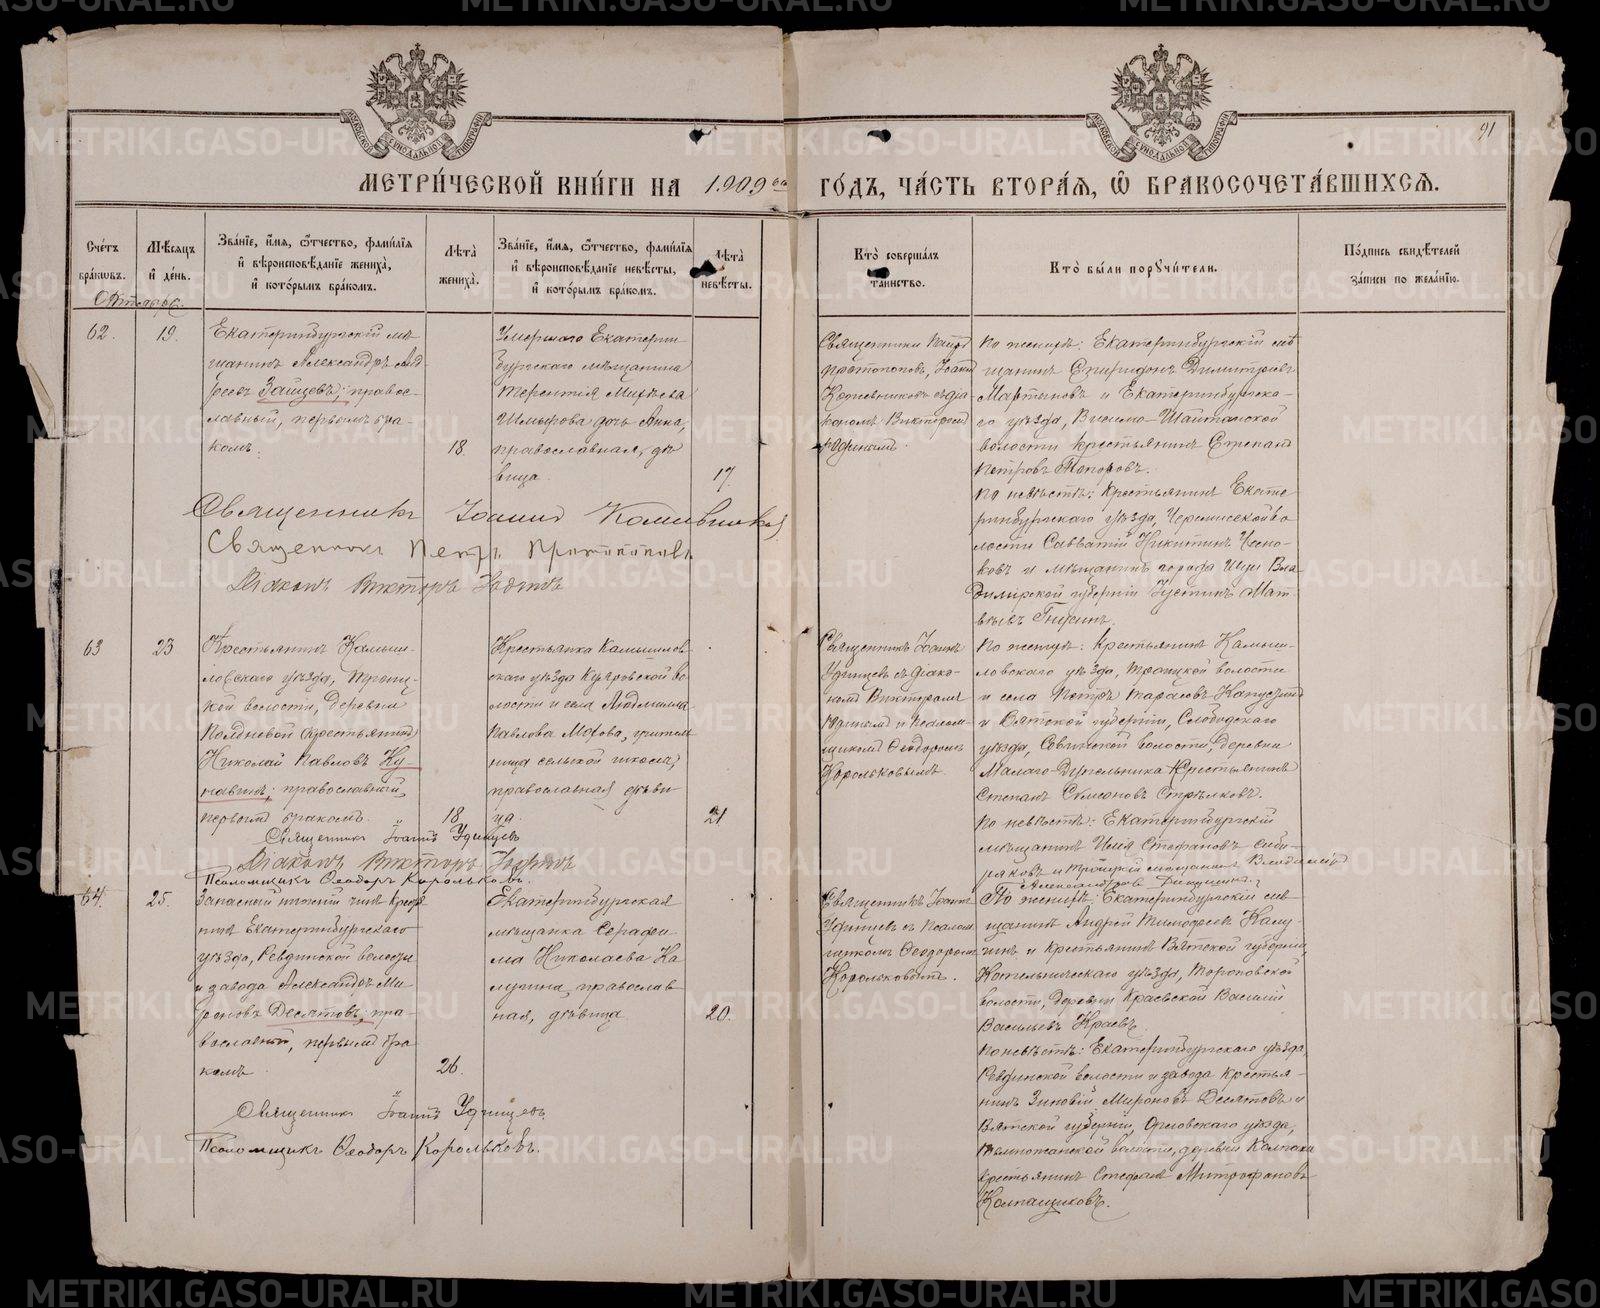 91
МЕТРИ́ЧЕСКОЙ КНИ́ГИ НА 1909 ГО́ДЪ, ЧА́СТЬ ВТОРА́Я, Ѡ БРАКОСОЧЕТА́ВШИХСЯ.
Сче́тъ бра́кѡвъ.
Мѣ́сяцъ и́ де́нь.
Зва́нїе, и́мя, ѻ́тчество, фами́лїя и́ вѣроисповѣ́данїе жениха̀, и́ кото́рымъ бра́комъ.
Лѣта̀ жениха̀.
Зва́нїе, и́мя, ѻ́тчество, фами́лїя и́ вѣроисповѣ́данїе невѣ́сты, и́ кото́рымъ бра́комъ.
Лѣта̀ невѣ́сты.
Кто̀ соверша́лъ таинство.
Кто̀ бы́ли порꙋчи́тели.
По́дпись свидѣ́телей за́писи по жела́нїю.
Октябрь.
62.
19.
Екатеринбургскій мѣ-
щанинъ Александръ Анд
реевъ Зайцевъ; правос-
лавный, первымъ бра-
комъ.
18.
Умершаго Екатерин
бургскаго мѣщанина
Терентія Михѣева
дочь Анна,
православная, дѣ
вица.
17.
Священники Петръ
Протопоповъ, Іоаннъ
съ діа
кономъ Викторомъ
Юдинымъ.
По женихѣ: Екатеринбургскій мѣ
щанинъ Спиридонъ Димитріевъ
Мартыновъ и Екатеринбургска-
го уѣзда, Висимо-Шайтанской
волости крестьянинъ Степанъ
Петровъ Топоровъ.
По невѣстѣ: Крестьянинъ Екате
ринбургскаго уѣзда, Черемисской во
лости Савватій Никитинъ Чесно-
ковъ и мѣщанинъ города Шуи Вла-
димірской губерніи Іустинъ Мат-
вѣевъ
Священникъ Іоаннъ
Священникъ Петръ Протопоповъ
Діаконъ Викторъ Юдинъ
63
23
Крестьянинъ Камыш-
ловскаго уѣзда, Троиц-
кой волости, деревни
Полдневой (крестьянинъ)
Николай Павловъ Ку-
навинъ; православный,
первымъ бракомъ.
18
Крестьянка Камышлов-
скаго уѣзда Куяровской во
лости и села Людмилла
Павлова Мохова, учитель
ница сельской школы,
православная дѣви
ца.
21
Священникъ Іоаннъ
Удинцевъ съ діако-
номъ Викторомъ
Юдинымъ и псалом-
щикомъ Ѳеодоромъ
Корольковымъ.
По женихѣ: крестьянинъ Камыш-
ловскаго уѣзда, Троицкой волости
и села Петръ Тарасовъ
и Вятской губерніи, Слободскаго
уѣзда, волости, деревни
Малаго крестьянинъ
Степанъ Симеоновъ Стрѣлковъ.
По невѣстѣ: Екатеринбургскій
мѣщанинъ Илія Стефановъ Сиби-
ряковъ и Троицкій мѣщанинъ Владиміръ
Александровъ
Священникъ Іоаннъ Удинцевъ
Діаконъ Викторъ Юдинъ
Псаломщикъ Ѳеодоръ Корольковъ.
64.
25.
Запасный нижній чинъ крестья
нинъ Екатеринбургскаго
уѣзда, Ревдинской волости
и завода Александръ Ми
роновъ Десятовъ; пра-
вославный, первымъ бра
комъ
26.
Екатеринбургская
мѣщанка Серафи-
ма Николаева Ка
лугина, православ
ная, дѣвица
20.
Священникъ Іоаннъ
Удинцевъ съ псалом
щикомъ Ѳеодоромъ
Корольковымъ.
По женихѣ: Екатеринбургскій мѣ-
щанинъ Андрей Тимофеевъ
и крестьянинъ Вятской губерніи,
Котельническаго уѣзда, Тороповской
волости, деревни Краевской Василій
Васильевъ Краевъ.
По невѣстѣ: Екатеринбургскаго уѣзда,
Ревдинской волости и завода крестья-
нинъ Зиновій Мироновъ Десятовъ и
Вятской губерніи, Орловскаго уѣзда,
волости, деревни
крестьянинъ Стефанъ Митрофановъ
Колпащиковъ.
Священникъ Іоаннъ Удинцевъ
Псаломщикъ Ѳеодоръ Корольковъ.
METRIKI.GASO-URAL.RU